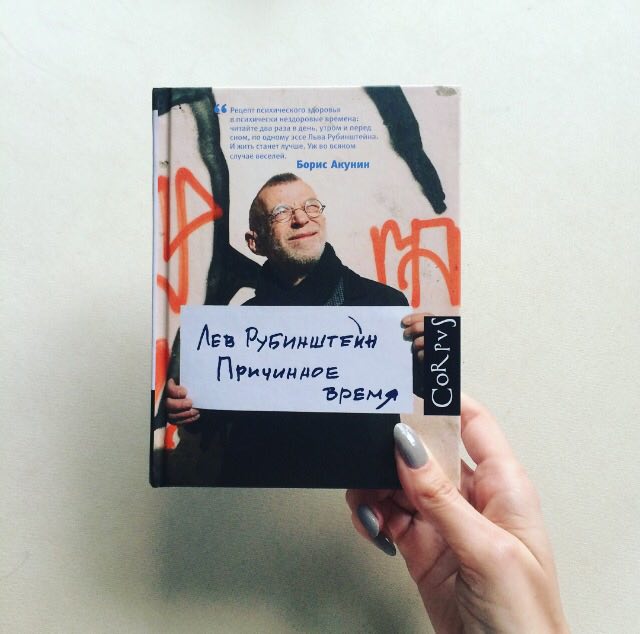 “ Рецепт психического здоровья
в психически нездоровые времена:
читайте два раза в день, утром и перед
сном, по одному эссе Льва Рубинштейна.
И жить станет лучше. Уж во всяком
случае веселей.
Борис Акунин
Лев Рубинштейн
Причинное
время
CORPVS